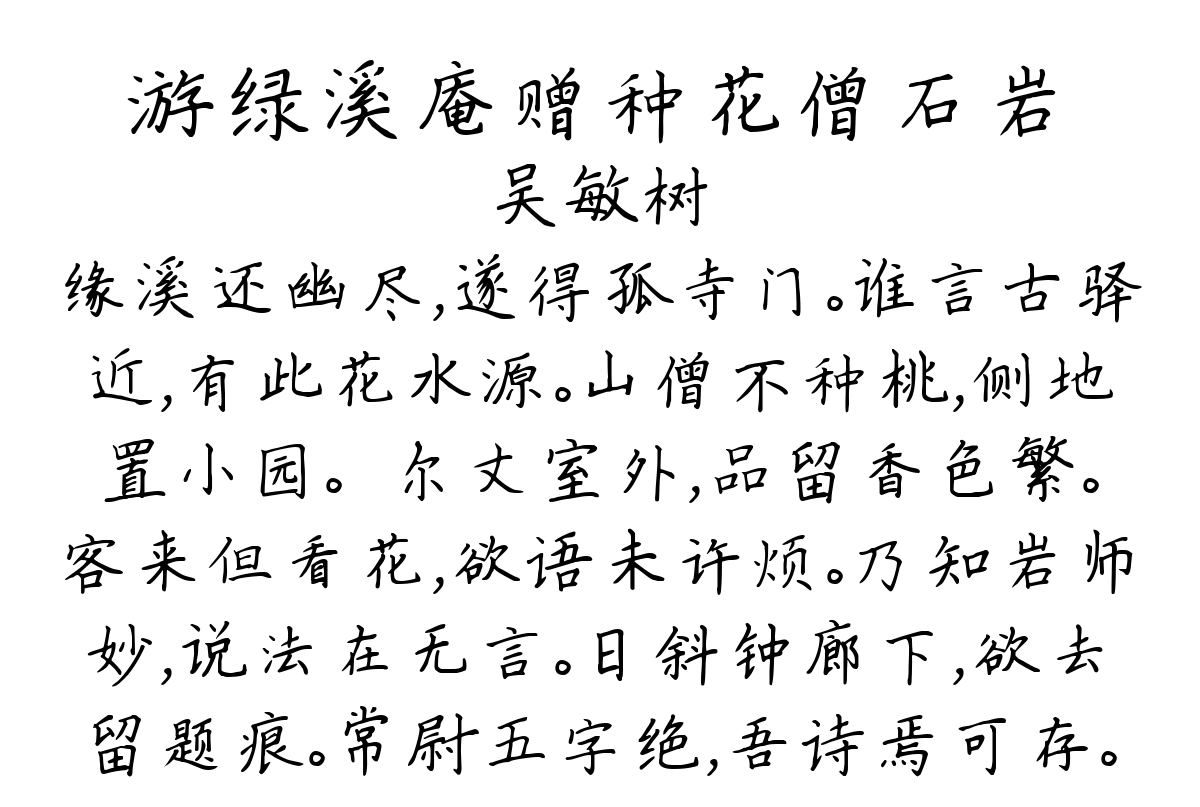 游绿溪庵赠种花僧石岩
吴敏树
缘溪还幽尽,遂得孤寺门。谁言古驿
近,有此花水源。山僧不种桃,侧地
置小园。 尔丈室外,品留香色繁。
客来但看花,欲语未许烦。乃知岩师
妙,说法在无言。日斜钟廊下,欲去
留题痕。常尉五字绝,吾诗焉可存。